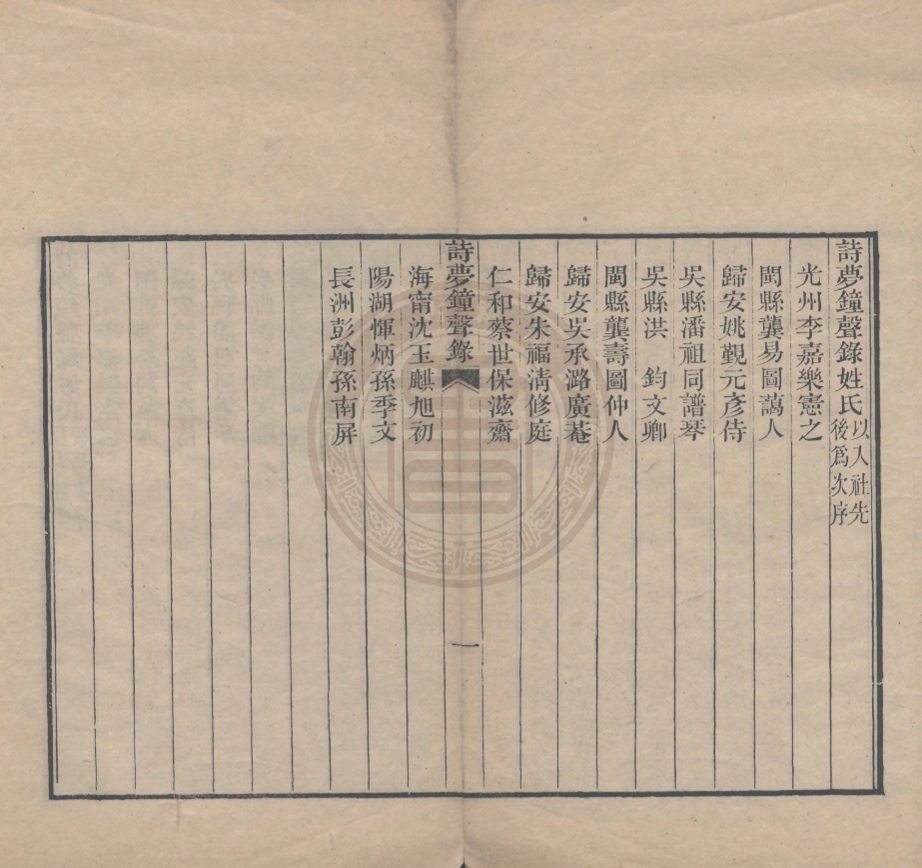 詩夢鐘聲錄姓氏以入社先
後爲次序
光州李嘉樂憲之
閩縣龔易圖藹人
歸安姚覲元彥侍
吳縣潘祖同譜琴
吳縣洪　鈞文卿
閩縣龔壽圖仲人
歸安吳承潞廣菴
歸安朱福淸修庭
仁和蔡世保滋齋
詩夢鐘聲錄
一
海甯沈玉麒旭初
陽湖惲炳孫季文
長洲彭翰孫南屏